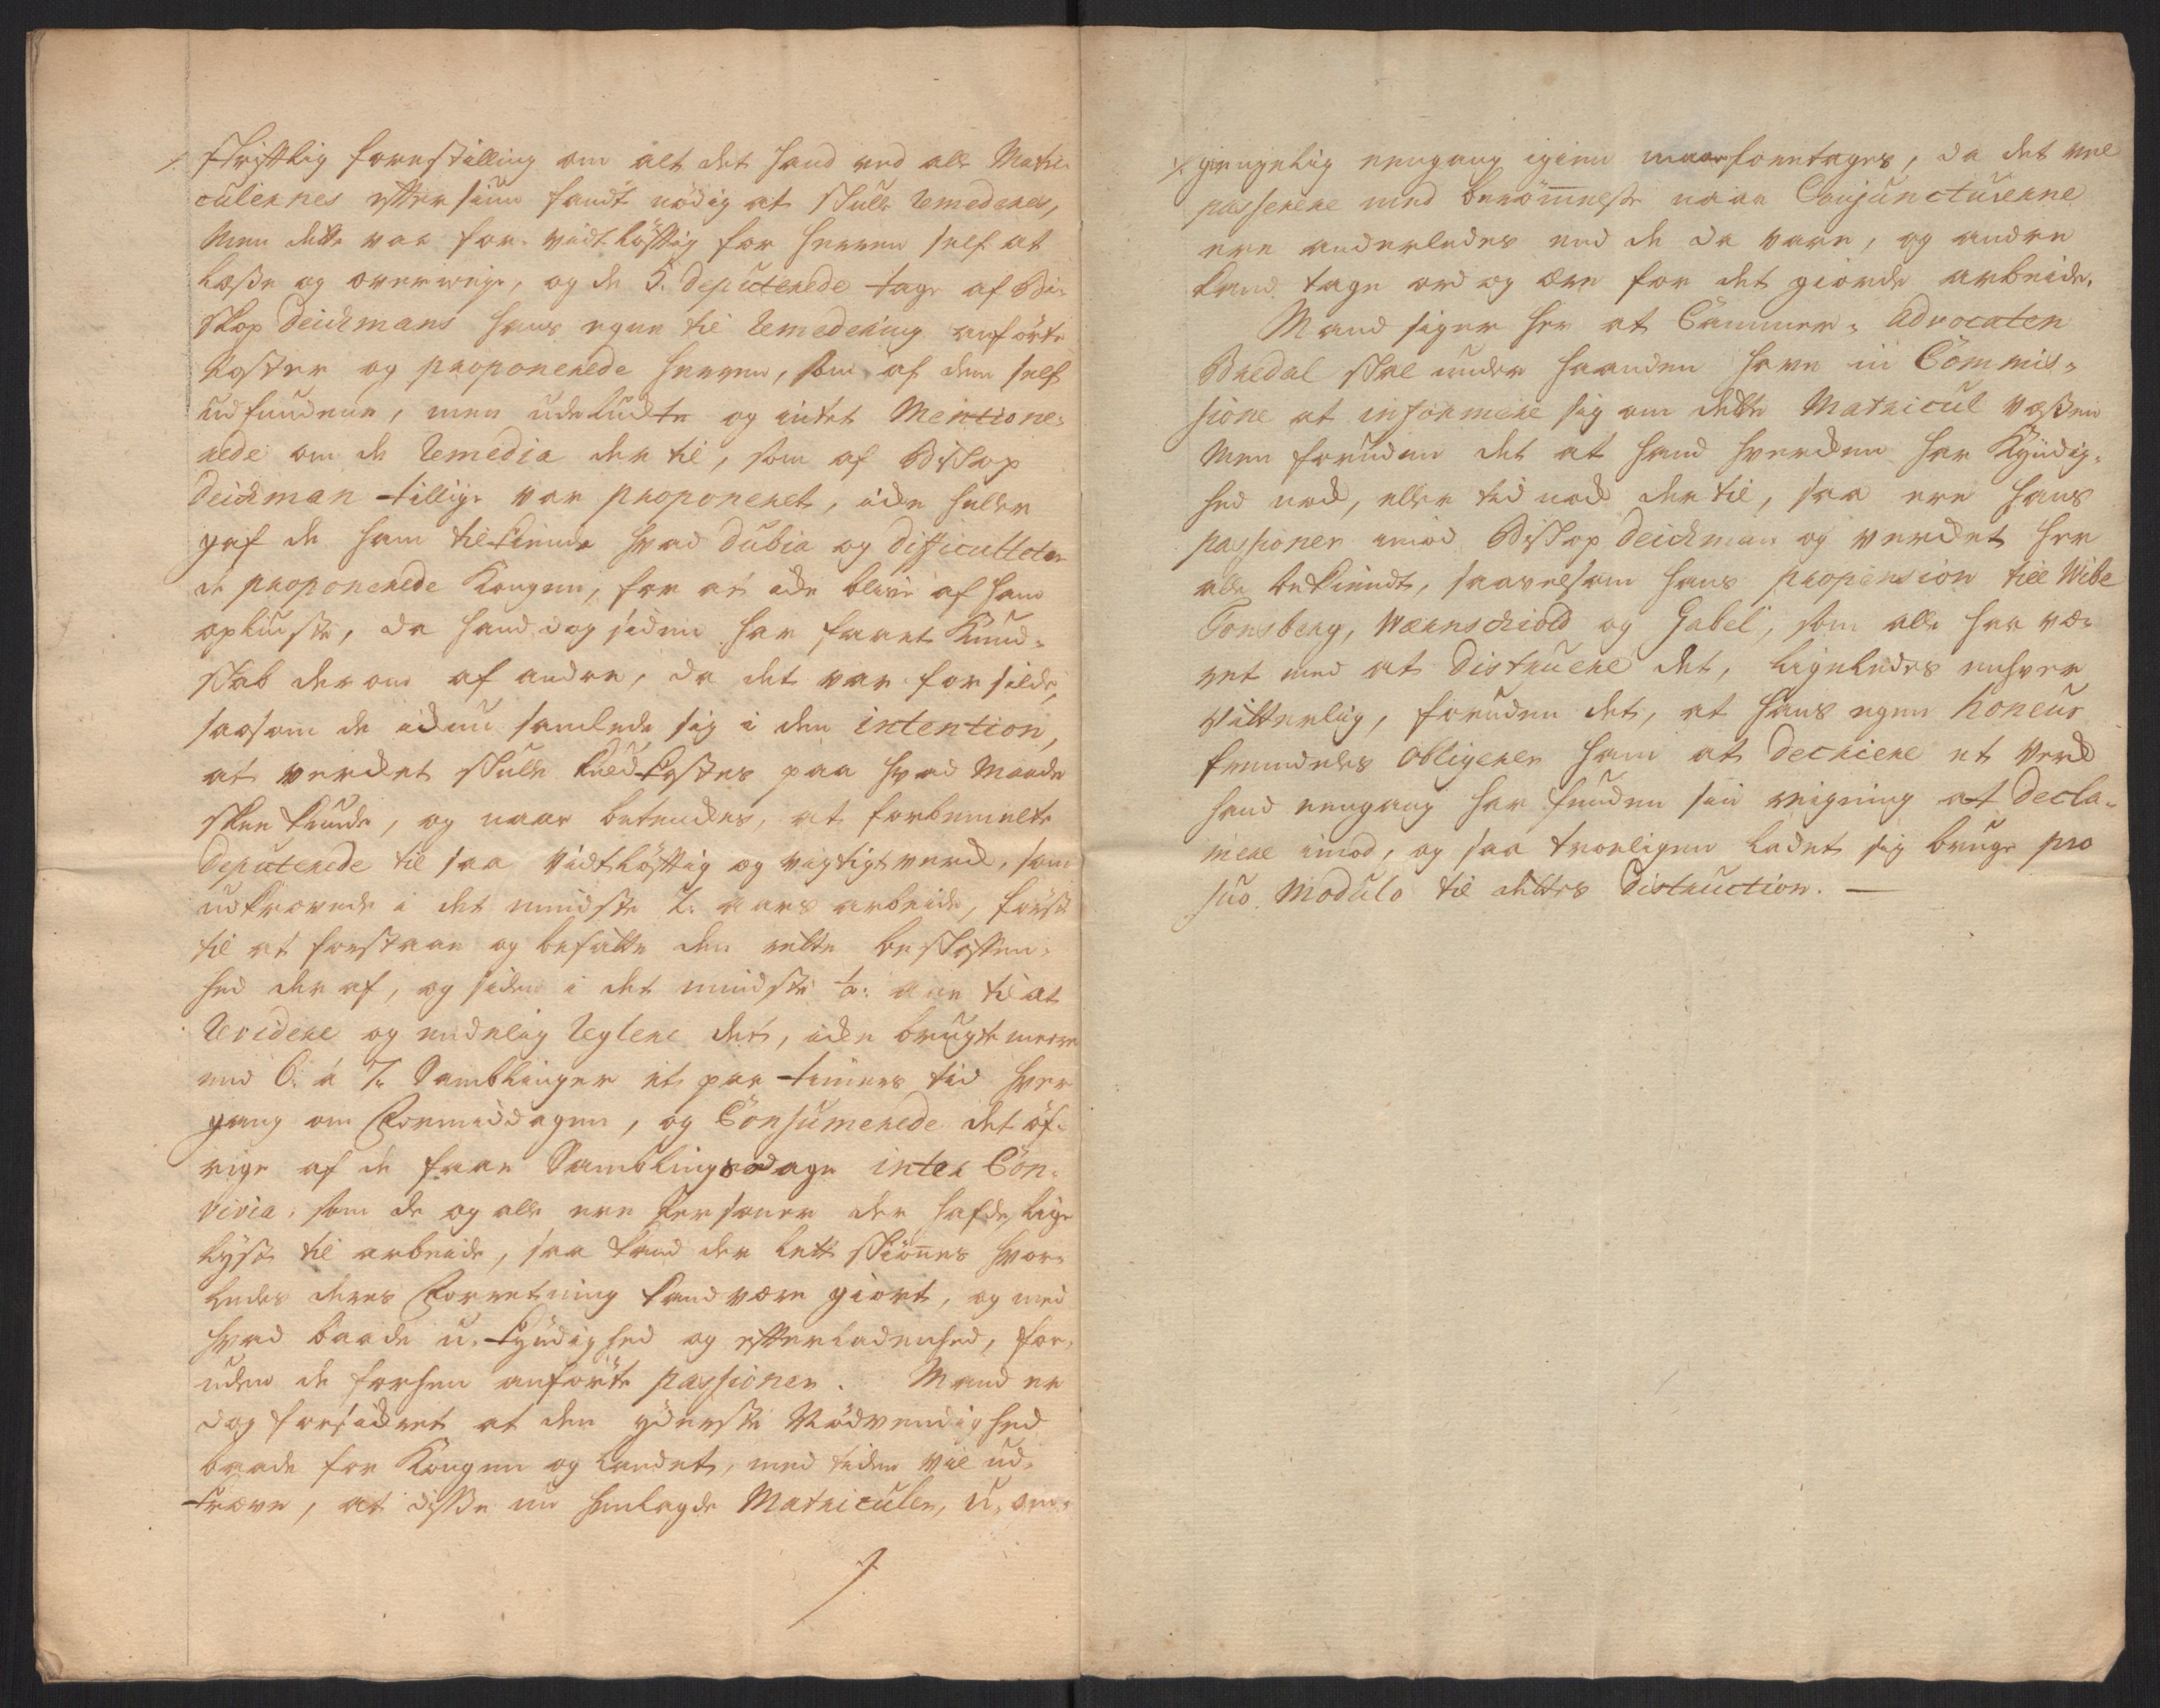 /. skriftlig forestilling om alt det hand ved alle Matri-
culernes eftersiun fandt nödig at skulle remederes,
Men dette var for vidtlöftig for herren self at
læse og overveye, og de 5. deputerede tage af Bi-
skop Deichmans hans egne til remedering anförte
Poster og proponerede herren, som af dem self
udfundene, men udeludte og intet Mentione-
rede om de remedia der til, som af Biskop
Deichman tillige var proponeret, icke heller
gaf de ham tilkiende hvad dubia og difficulteter
de proponerede Kongen, for at icke blive af ham
opliuste, da hand dog siden har faaet Kund-
skab derom af andre, da det var for silde,
saasom de ickun samlede sig i den intention,
at verket skulle kuldkastes paa hvad Maade
skee kunde, og naar betænckes, at forbemelte
Deputerede til saa vidtlöftig og vigtigt verck, som
udkrævede i det mindste 2. aars arbeide, först
til at forstaae og befatte den rette beskaffen-
hed der af, og siden i det mindste ½. aar til at
revidere og endelig reglere det, icke brugte meere
end 6. á 7. Samblinger et par timers tid hver
gang om Formiddagen, og Consumerede det öf-
rige af de faae Samblings dage inter Con-
vivia, som de og alle ere Personer der hafde lige
lyst til arbeide, saa kand der lett skiönnes hvor-
ledes deres Forretning kand være giort, og med
hvad baade u-kyndighed og efterladenhed, for-
uden de forhen anförte passioner. Mand er
dog forsickret at den yderste Nödvendighed
baade for Kongen og Landet, med tiden vil ud-
kræve, at disse nu henlagde Matriculer, u-om-
/.
/. giengelig eengang igien maae foretages, da det vel
passerere med berömmelse naar Conjuncturerne
ere anderledes end de da vare, og andre
kand tage ord og ære for det giorde arbeide.
Mand siger her at Cammer-Advocaten
Bredal skal under haanden have in Commis-
sione at informere sig om dette Matricul væsen
Men foruden det at hand hvercken har Kyndig-
hed nock, eller tid nock der til, saa ere hans
passioner imod Biskop Deichman og vercket her
alle bekiendt, saavelsom hans propension till Wibe
Tonsberg, Wærnschiold og Gabel, som alle har væ-
ret med at distruere det, ligeledes enhver
vitterlig, foruden det, at hans egen honeur
fremdeles obligerer ham at decriere et verck
hand eengang har funden sin reigning at decla-
mere imod, og saa troeligen ladet sig bruge pro
suo Modulo til dettes Distruction. —